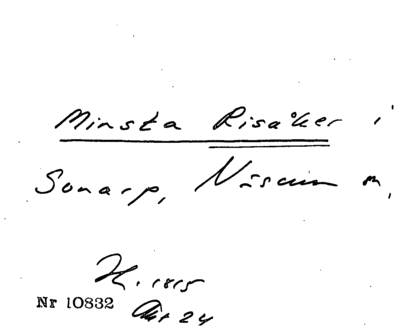 Minsta Risåker i
Sonarp, Näsum s.
H. 1815
Nr 10832
Akt 24